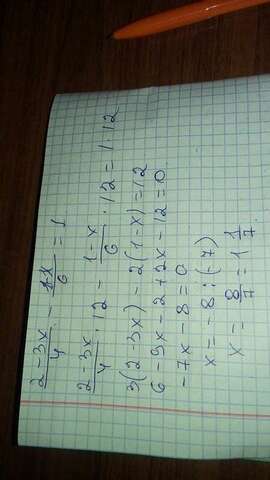 2-3x/4 - 1-x/6 = 1
2-3x/4 · 12 - 1-x/6 · 12 = 1 · 12
3(2-3x) - 2(1-x) = 12
6-9x-2+2x-12=0
-7x-8=0
x = -8:(-7)
x = 8/7 = 1 1/7.